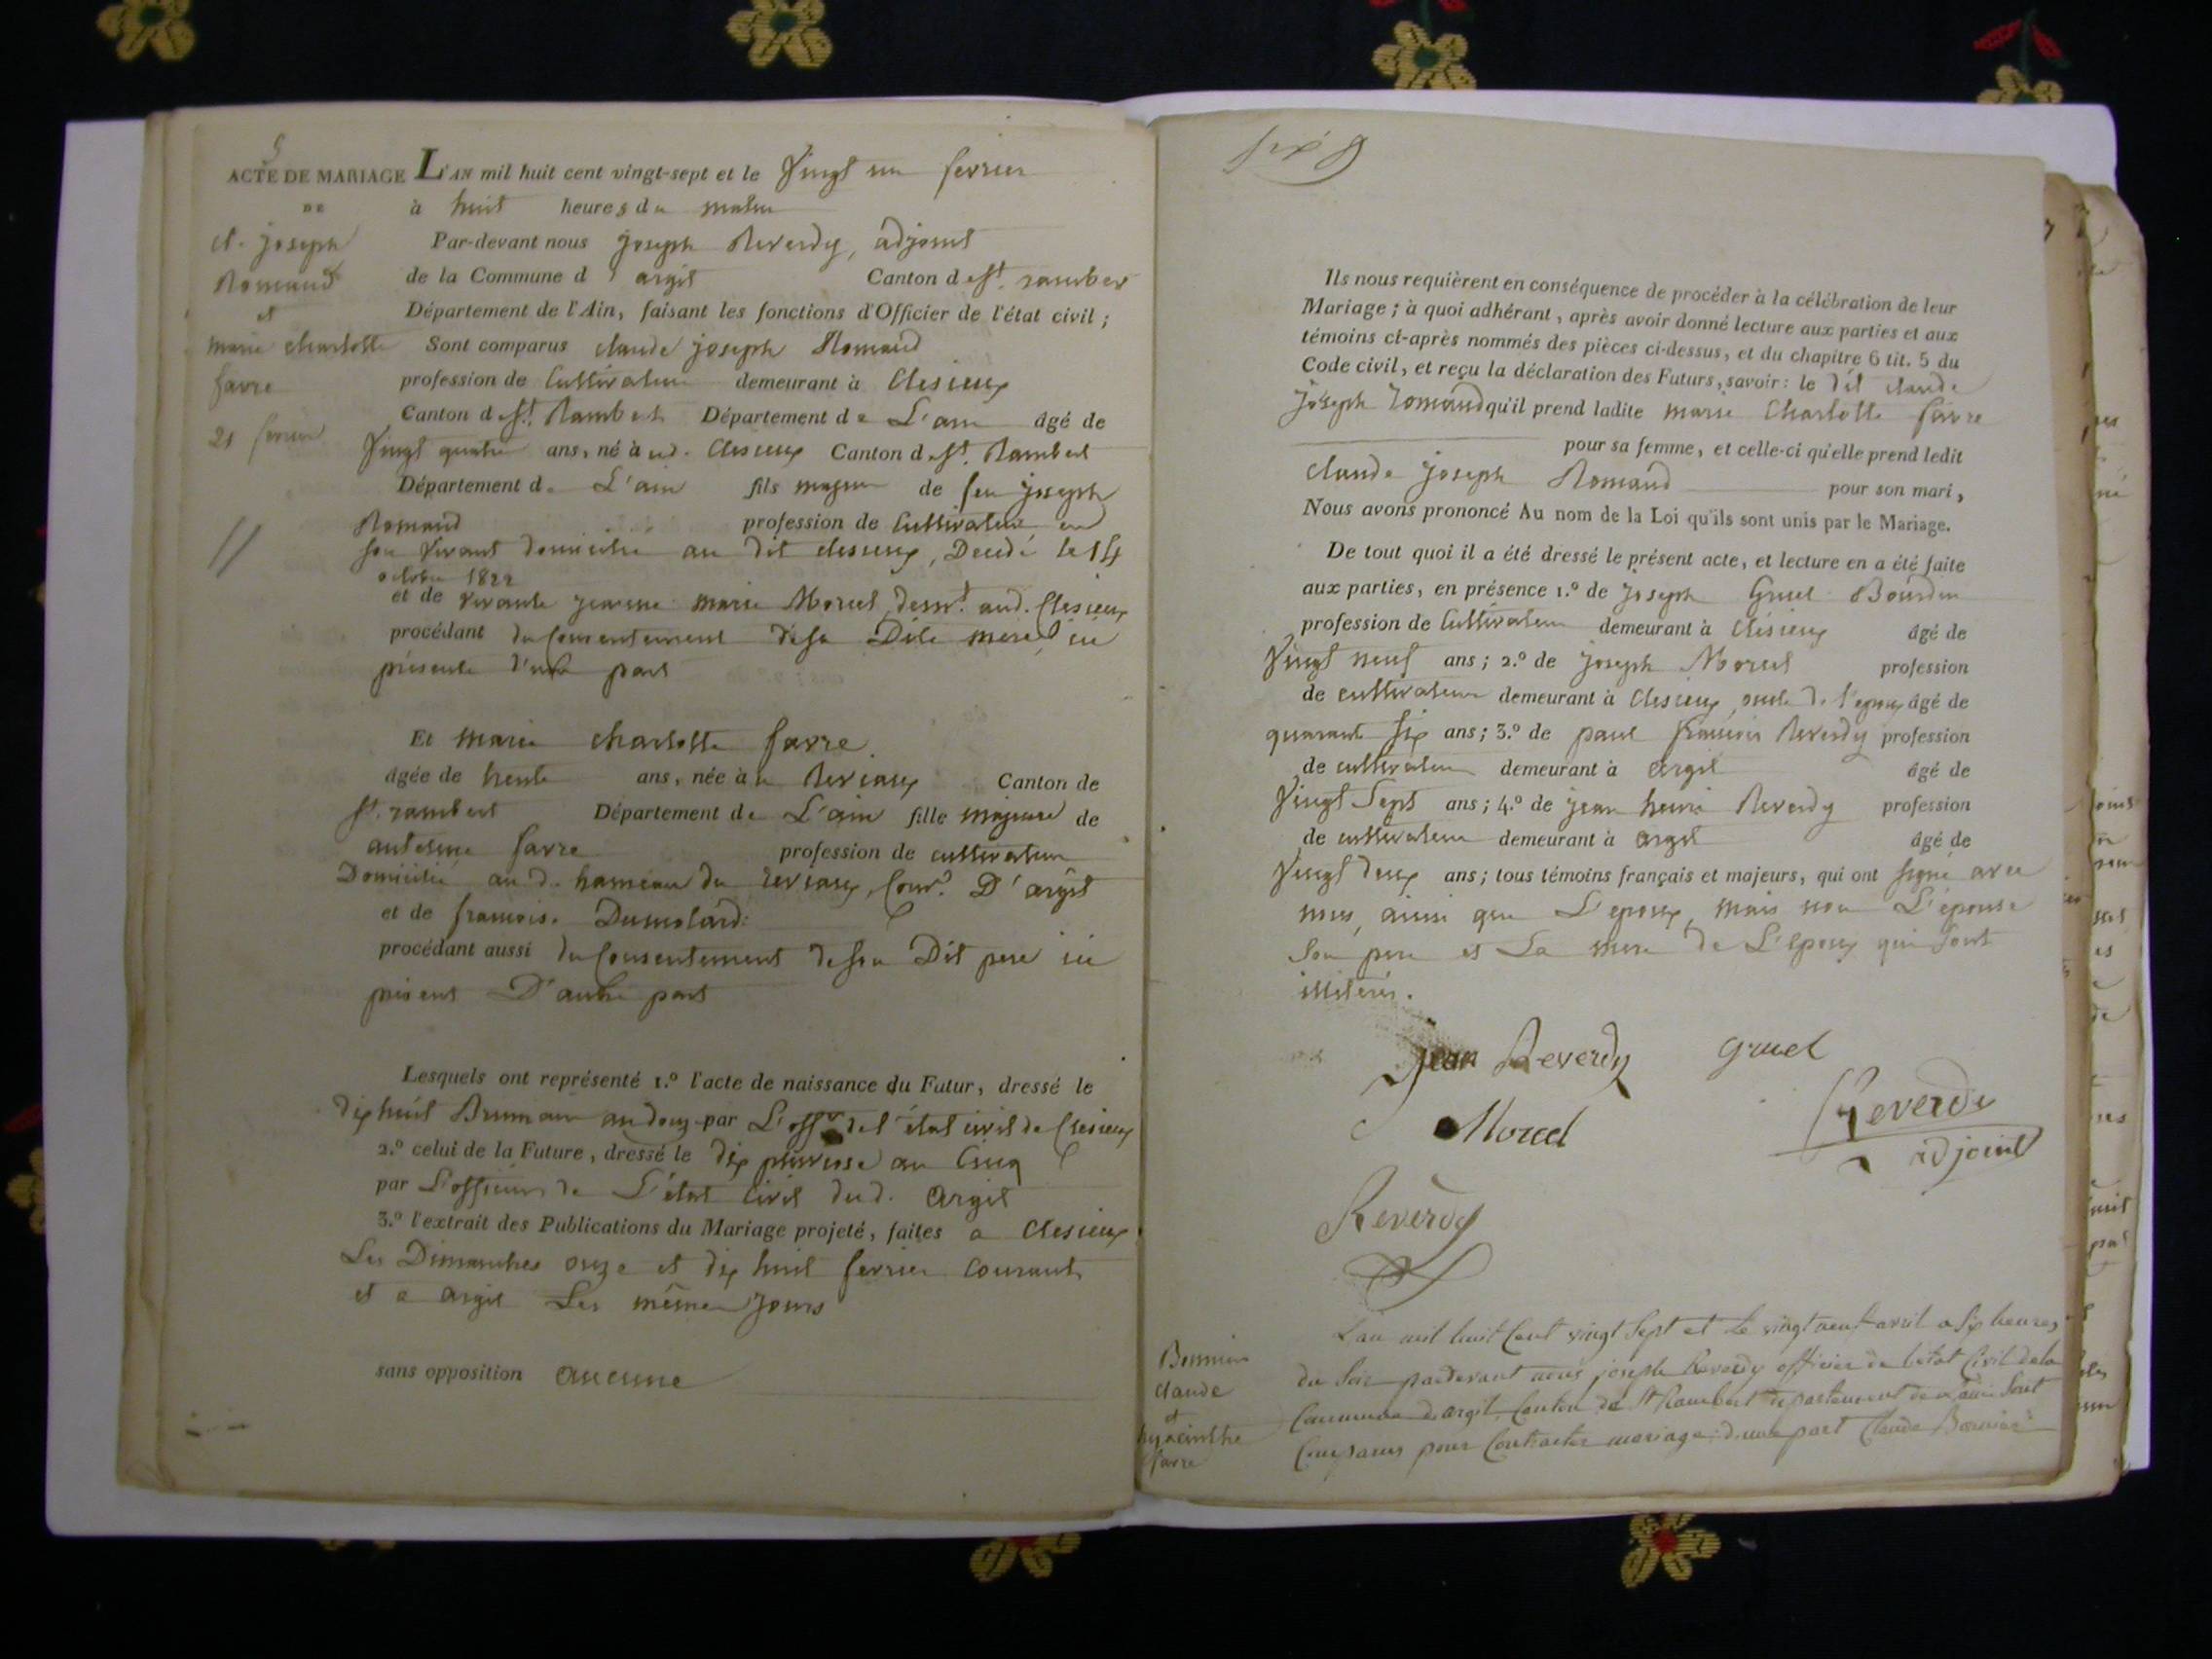 5
ACTE DE MARIAGE L'AN mil huit cent vingt-sept et le vingt un fevrier
DE à huit heures du matin
cl. joseph
Romand
et
marie charlotte
favre
21 fevrier
Par-devant nous joseph Reverdy, adjoint
de la Commune d'argit Canton de St. rambert
Département de l'Ain, faisant les fonctions d'Officier de l'état civil ;
Sont comparus claude joseph Romand
profession de Cultivateur demeurant à Clesieux
Canton de St. Rambert Département de L'ain âgé de
vingt quatre ans, né à ud. Clesieux Canton de St. Rambert
Département de L'ain fils majeur de feu joseph
Romand profession de Cultivateur en
son vivant domicilié au dit clesieux, Decedé le 14
octobre 1822
et de vivante jeanne marie Morcel, demt. aud. Clesieux
procédant du Consentement de sa Dite mere, ici
présente d'une part
Et marie charlotte favre
âgée de trente ans, née à Reviaux Canton de
St. rambert Département de L'ain fille majeure de
antelme favre profession de cultivateur
Domicilié au d. hameau du reviaux, Comne. D'argit
et de francoise Dumolard
procédant aussi du Consentement de son Dit pere ici
présent D'autre part
Lesquels ont représenté 1.º l'acte de naissance du Futur, dressé le
dix huit Brumaire an douze par L'offer. de l'état civil de Clesieux
2.º celui de la Future, dressé le dix pluviose an Cinq
par L'officier de L'état Civil dud. argit
3.º l'extrait des Publications du Mariage projeté, faites a Clesieux
Les Dimanches onze et dix huit fevrier Courant
et a argit Les mêmes Jours
sans opposition aucune
six
Ils nous requièrent en conséquence de procéder à la célébration de leur
Mariage ; à quoi adhérant, après avoir donné lecture aux parties et aux
témoins ci-après nommés des pièces ci-dessus, et du chapitre 6 tit. 5 du
Code civil, et reçu la déclaration des Futurs, savoir : le dit claude
joseph romand qu'il prend ladite marie Charlotte favre
pour sa femme, et celle-ci qu'elle prend ledit
claude joseph Romand pour son mari,
Nous avons prononcé Au nom de la Loi qu'ils sont unis par le Mariage.
De tout quoi il a été dressé le présent acte, et lecture en a été faite
aux parties, en présence 1.º de joseph Gruel Bourdin
profession de Cultivateur demeurant à Clésieux âgé de
vingt neuf ans ; 2.º de joseph Morcel profession
de cultivateur demeurant à Clesieux, oncle de l'epoux âgé de
quarante six ans ; 3.º de paul francois Reverdy profession
de cultivateur demeurant à argit âgé de
vingt Sept ans ; 4.º de jean henri Reverdy profession
de cultivateur demeurant à argit âgé de
vingt deux ans ; tous témoins français et majeurs, qui ont signé avec
nous, ainsi que L'epoux, mais non L'épouse
Son pere et La mere de L'epoux qui sont
illitérés.
jean Reverdy gruel
Morcel
Reverdy
adjoint
Reverdy
Claude
et
hyacinthe
favre
L'an mil huit Cent vingt Sept et le vingt neuf avril a six heures
du Soir pardevant nous joseph Reverdy officier de l'etat Civil de la
Commune d'argit, Canton de St Rambert departement de L'ain Sont
Comparus pour Contracter mariage d'une part Claude